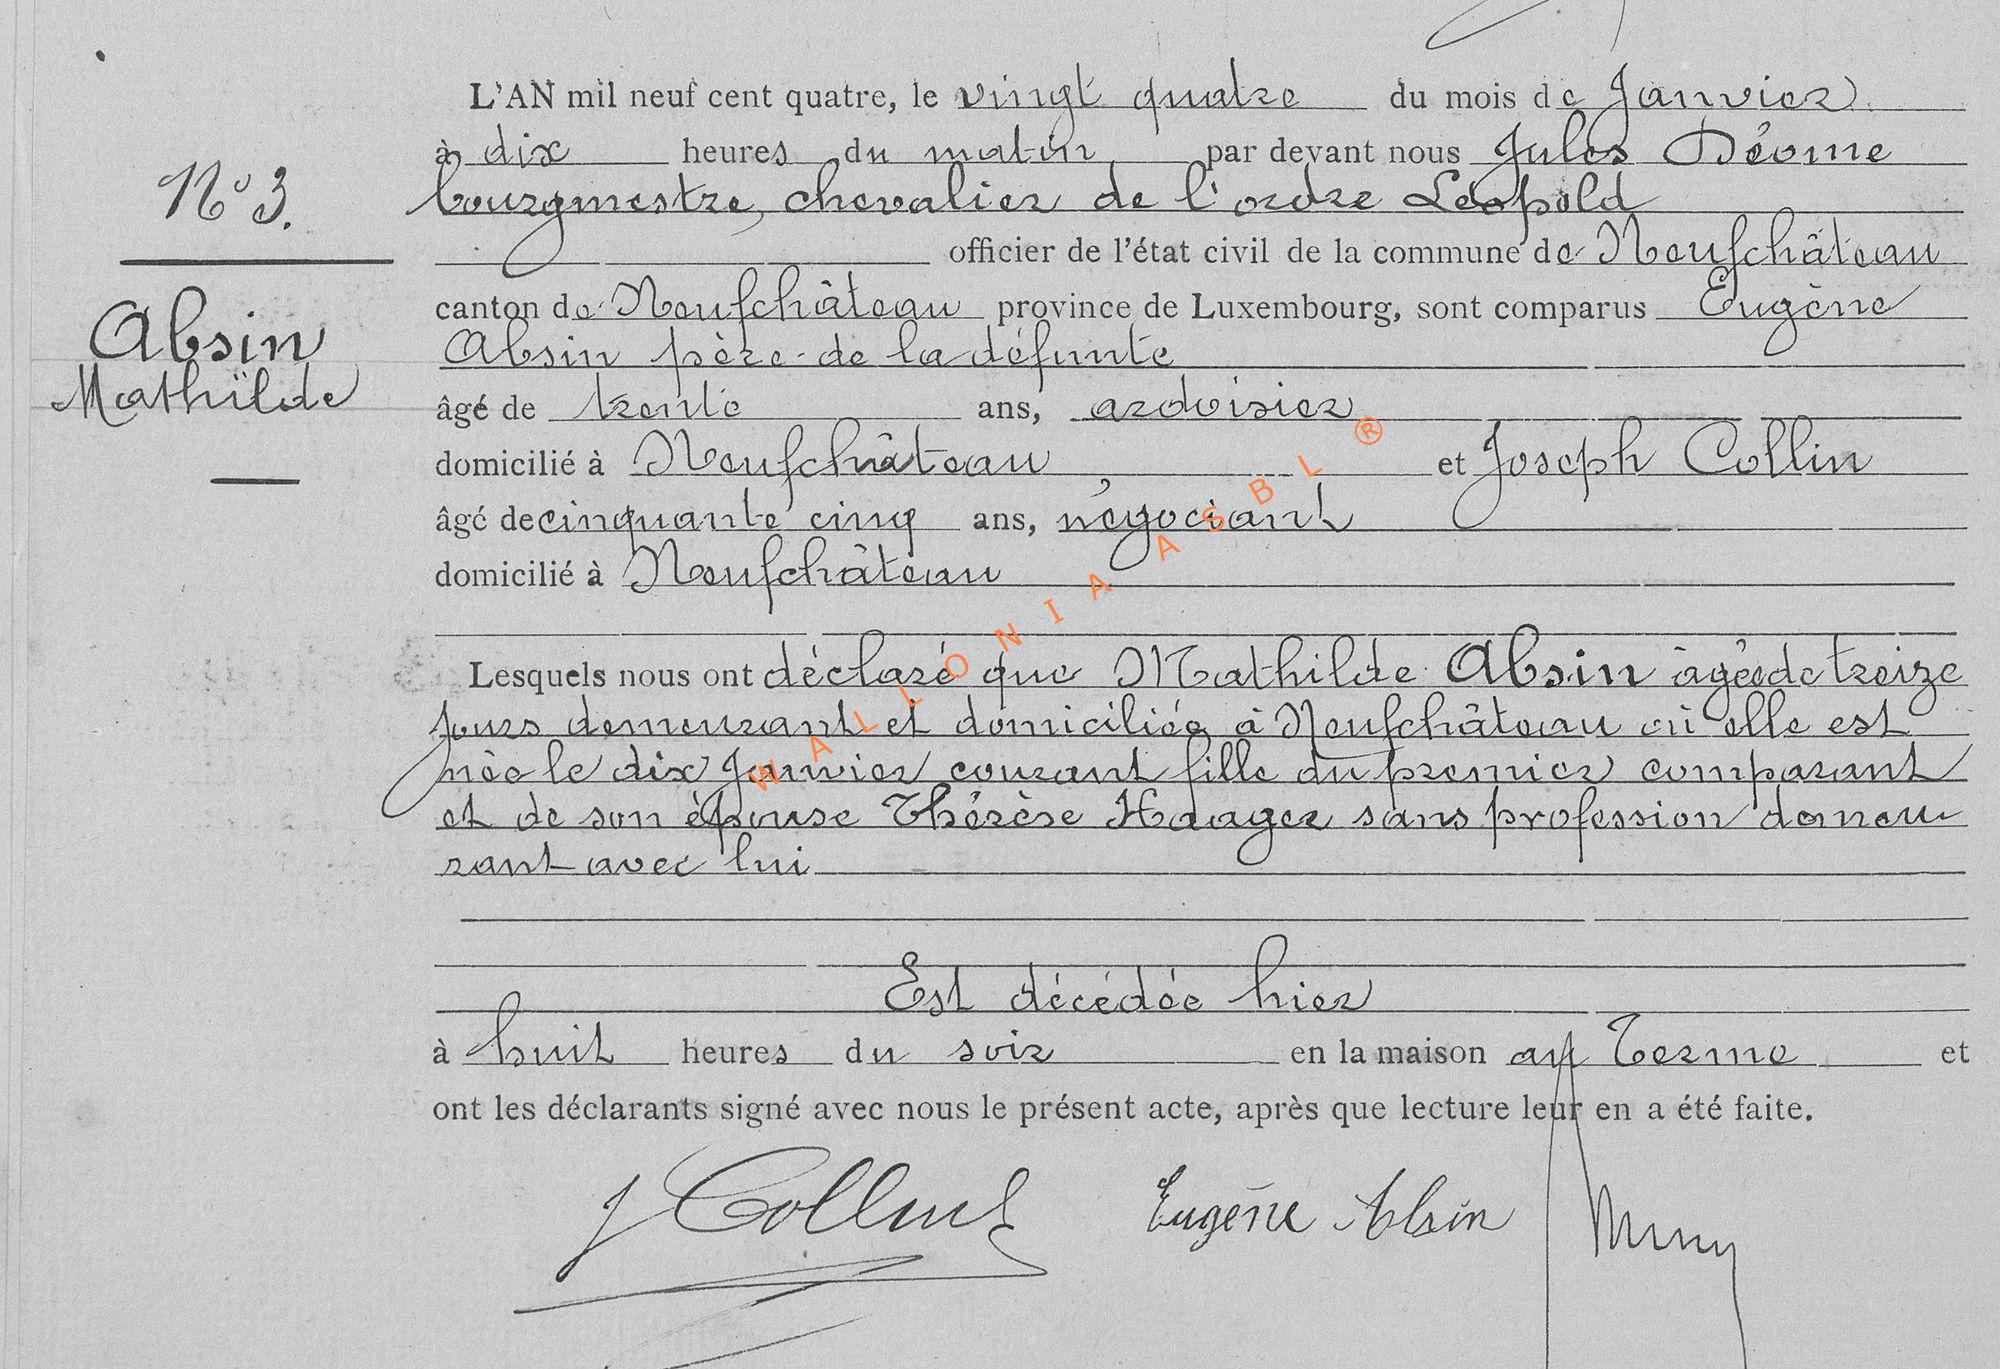 L'AN mil neuf cent quatre, le vingt quatre du mois de Janvier
à dix heures du matin par devant nous Jules Déome
N° 3.
bourgmestre, chevalier de l'ordre Léopold
officier de l'état civil de la commune de Neufchâteau
canton de Neufchâteau province de Luxembourg, sont comparus Eugène
Absin
Absin père de la défunte
Mathilde
âgé de trente ans, ardoisier
domicilié à Neufchâteau et Joseph Collin
âgé de cinquante cinq ans, négociant
domicilié à Neufchâteau
WALLONIA ASBL ®
Lesquels nous ont déclaré que Mathilde Absin âgée de treize
jours demeurant et domiciliée à Neufchâteau où elle est
née le dix Janvier courant fille du premier comparant
et de son épouse Thérèse Haager sans profession demeu
rant avec lui
Est décédée hier
à huit heures du soir en la maison au Terme et
ont les déclarants signé avec nous le présent acte, après que lecture leur en a été faite.
J Collin Eugène Absin